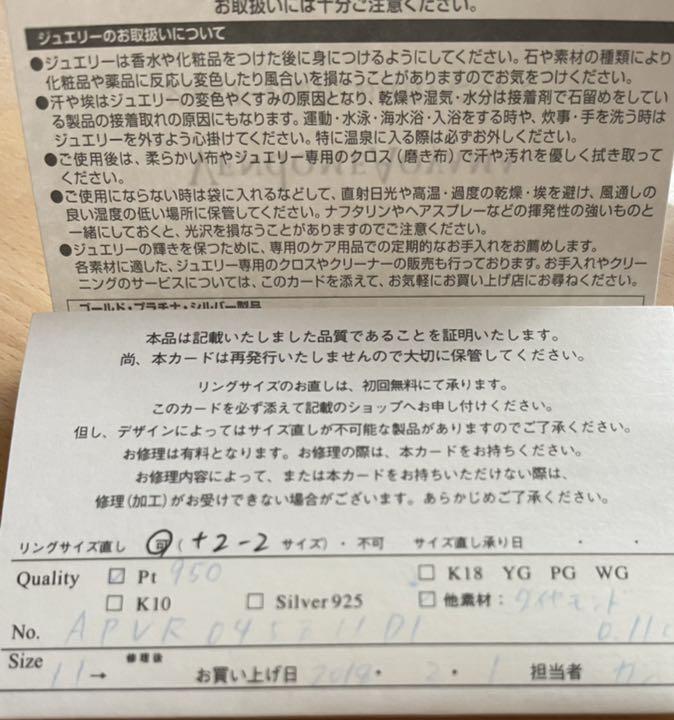 お取扱いには十分ご注意ください。
ジュエリーのお取扱いについて
●ジュエリーは香水や化粧品をつけた後に身につけるようにしてください。石や素材の種類により
化粧品や薬品に反応し変色したり風合いを損なうことがありますのでお気をつけください。
●汗や埃はジュエリーの変色やくすみの原因となり、乾燥や湿気・水分は接着剤で石留めをしてい
る製品の接着取れの原因にもなります。運動・水泳・海水浴・入浴をする時や、炊事・手を洗う時は
ジュエリーを外すよう心掛けてください。特に温泉に入る際は必ずお外しください。
●ご使用後は、柔らかい布やジュエリー専用のクロス(磨き布)で汗や汚れを優しく拭き取って
ください。
●ご使用にならない時は袋に入れるなどして、直射日光や高温・過度の乾燥・埃を避け、風通しの
良い湿度の低い場所に保管してください。ナフタリンやヘアスプレーなどの揮発性の強いものと
一緒にしておくと、光沢を損なうことがありますのでご注意ください。
●ジュエリーの輝きを保つために、専用のケア用品での定期的なお手入れをお薦めします。
各素材に適した、ジュエリー専用のクロスやクリーナーの販売も行っております。お手入れやクリー
ニングのサービスについては、このカードを添えて、お気軽にお買い上げ店にお尋ねください。
ゴールド・プラチナ・シルバー製品
本品は記載いたしました品質であることを証明いたします。
尚、本カードは再発行いたしませんので大切に保管してください。
リングサイズのお直しは、初回無料にて承ります。
このカードを必ず添えて記載のショップへお申し付けください。
但し、デザインによってはサイズ直しが不可能な製品がありますのでご了承ください。
お修理は有料となります。お修理の際は、本カードをお持ちください。
お修理内容によって、または本カードをお持ちいただけない際は、
修理(加工)がお受けできない場合がございます。あらかじめご了承ください。
リングサイズ直し 可(+2-2 サイズ)・不可 サイズ直し承り日 ・ ・
Quality Pt 950 K18 YG PG WG
K10 Silver925 他素材: ダイヤモンド
No. 0.11
Size 11→ 修理後 お買い上げ日 2018・2・1 担当者